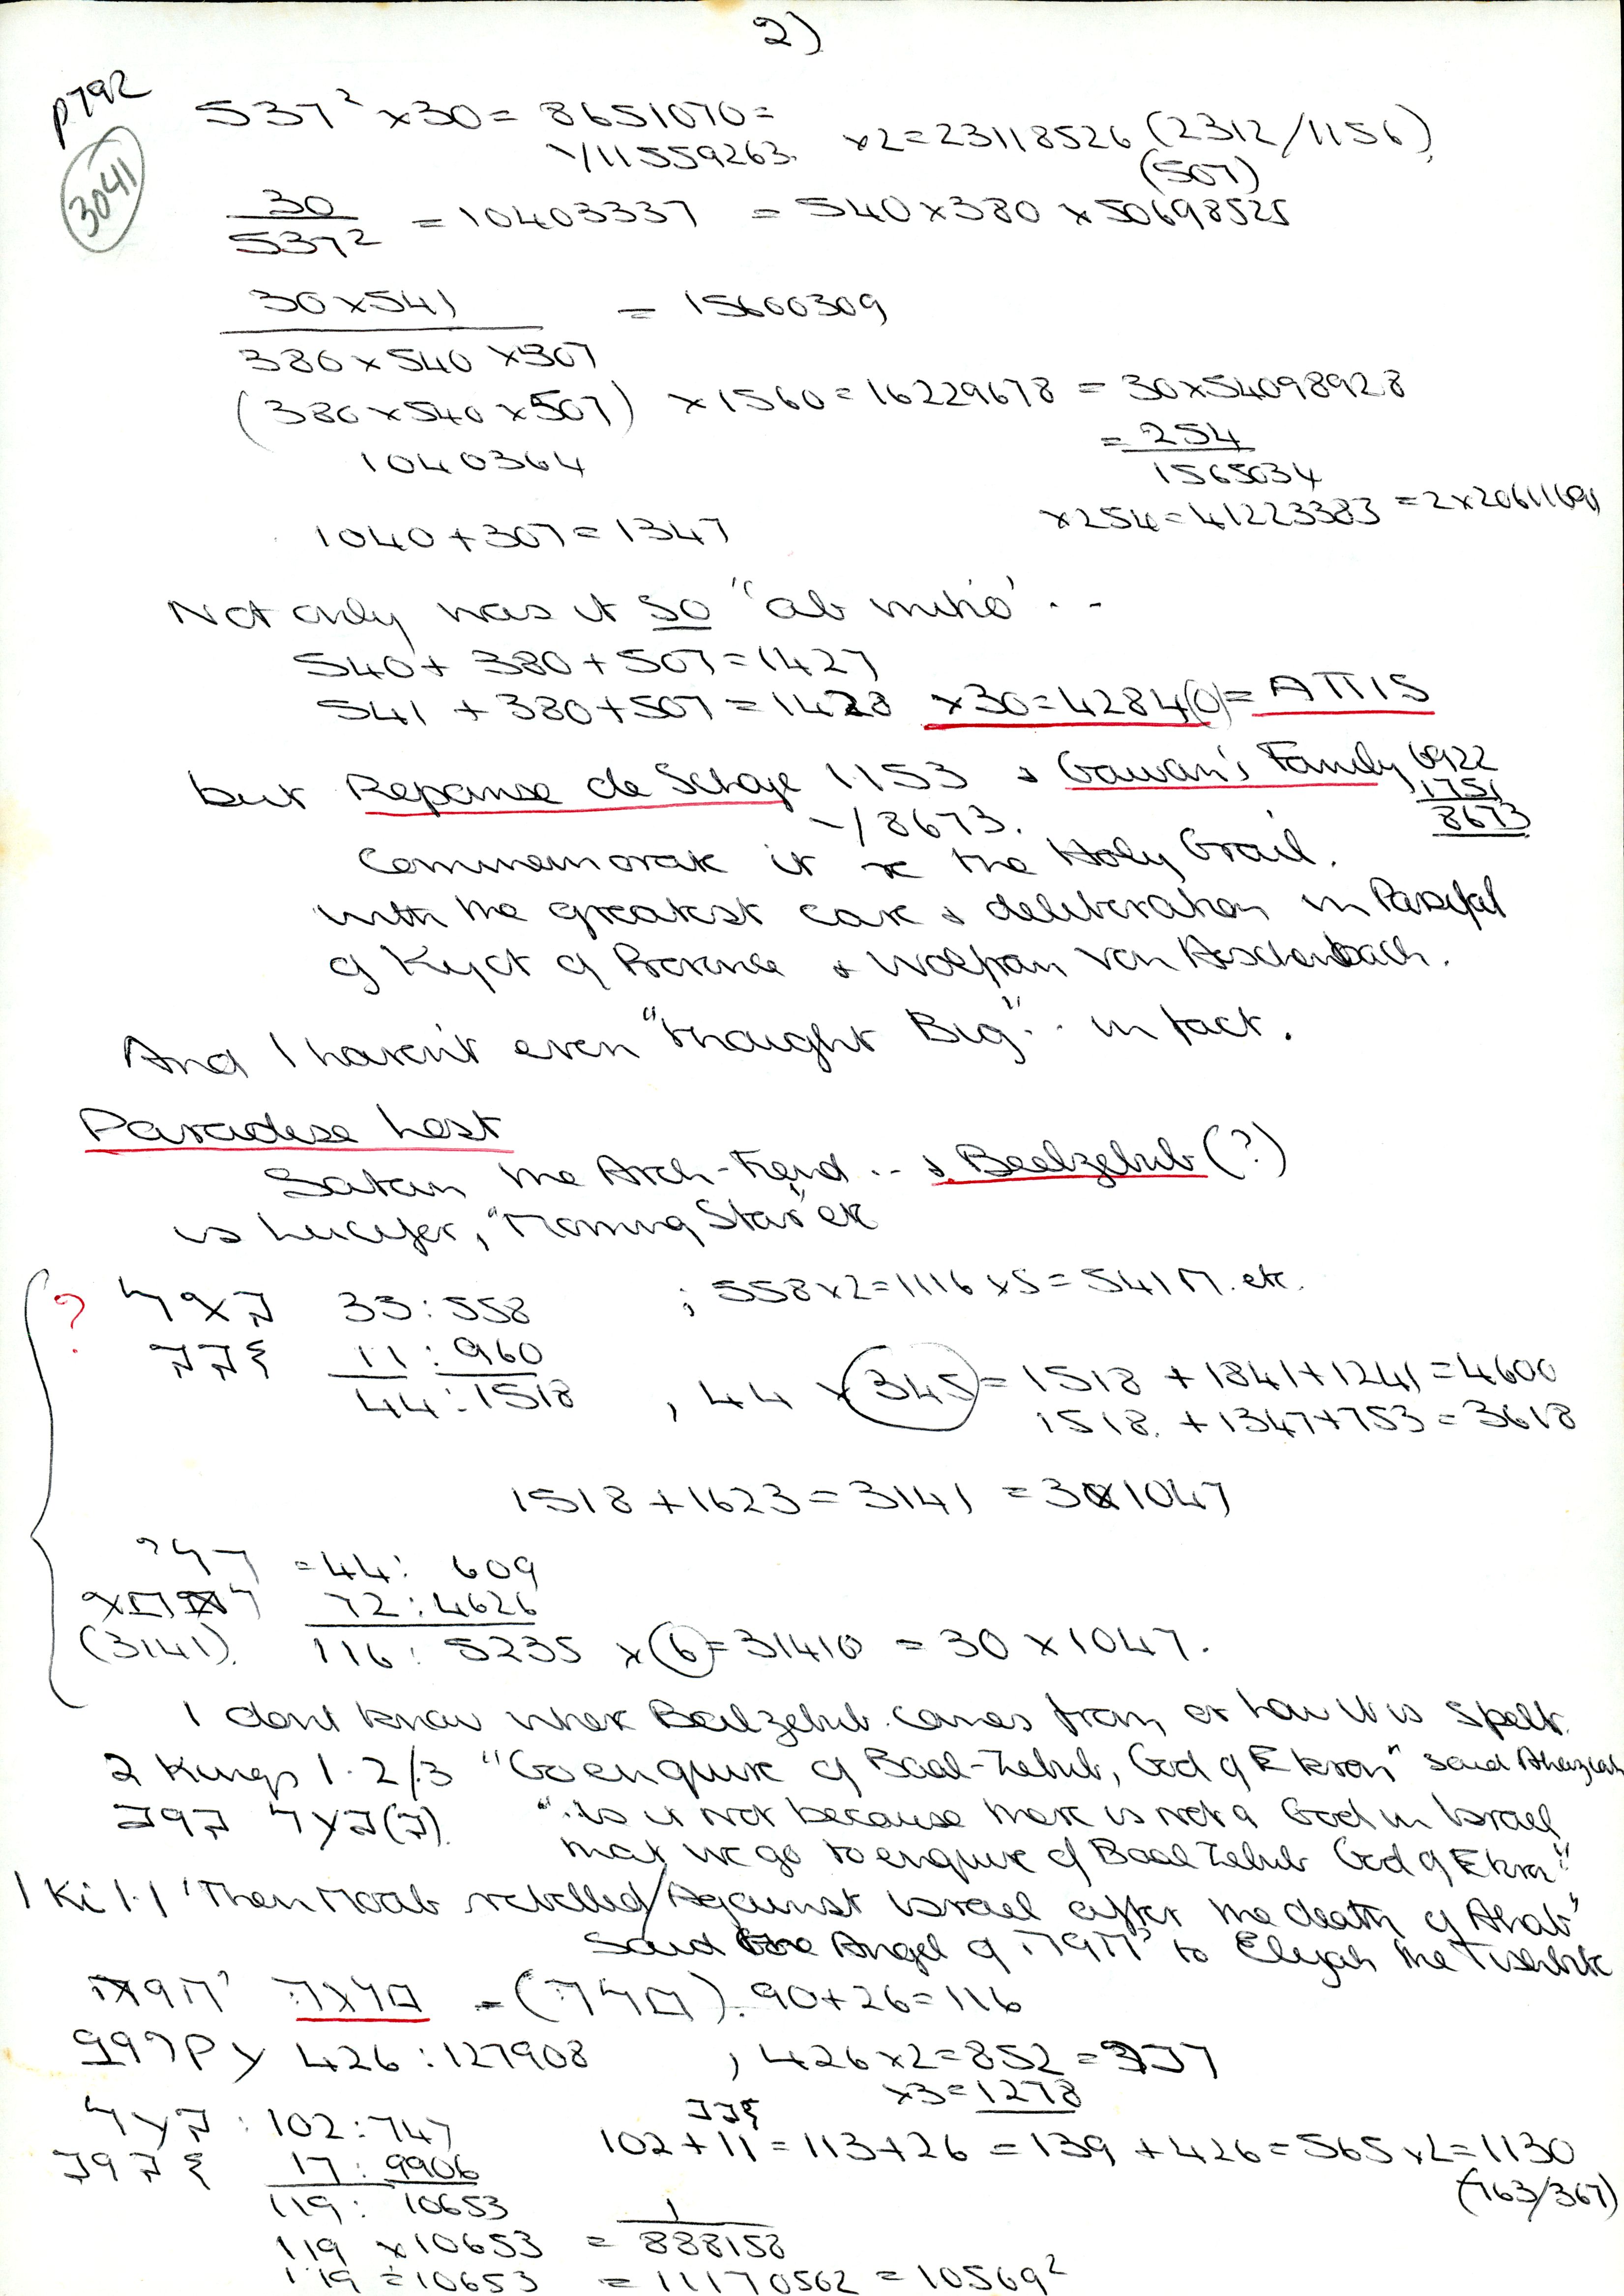 2)
p792
3041
537² x30 = 8651070 =
√11559263. x2=23118526 (2312/1156)
(507)
30/537² = 10403337 = 540x380 x50698525
30x541 = 15600309
380x540 x507
(380x540x507) x1560=16229678 = 30x54098928
1040364
= 254/1565034
x254=41223383 =2x20611691
1040+307=1347
Not only was it so "ab initio" . -
540+ 380+507=1427
541 +380+507=1428 x30=4284(0)= ATTIS
but Repanse de Schoye 1153 & Gawan's Family 6922
1751
8673
-/8673.
Commemorate it re the Holy Grail.
with the greatest care & deliberation in Parsifal
of Kyot of Provence & Wolfram Von Aeschenbach.
And I haven't even "thought Big" .. in fact.
Paradise Lost
Satan the Arch-Fiend .. & Beelzebub (?)
is Lucifer, "Morning Star" etc
? 33:558 ; 558x2=1116x5=541 etc.
11:960
44:1518 , 44 x 345= 1518 +1841+1241=4600
1518. +1347+753=3618
1518+1623=3141 =3x1047
=44: 609
72:4626
(3141). 116: 5235 x(6)=31410 = 30x1047.
I dont know where Beelzebub comes from, or how it is spelt.
2 Kings 1.2/.3 "Go enquire of Baal-Zebub, God of Ekron" said Ahaziah
"..Is it not because there is not a God in Israel
that we go to enquire of Baal Zebub God of Ekron"
1 Ki 1.1 'Then Moab rebelled/Against Israel after the death of Ahab"
Said the Angel of to Elijah the Tishbite
90+26=116
426:127908 , 426x2=852
x3=1278
: 102:747
102+11=113+26 =139 +426=565x2=1130
17: 9906 (763/367)
119: 10653
119 x10653 = 1/888158
119 ÷10653 = 11170562 =10569²